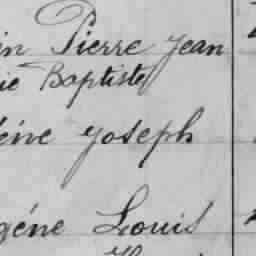 in Pierre Jean
ie Baptiste
éine Joseph
géne Louis